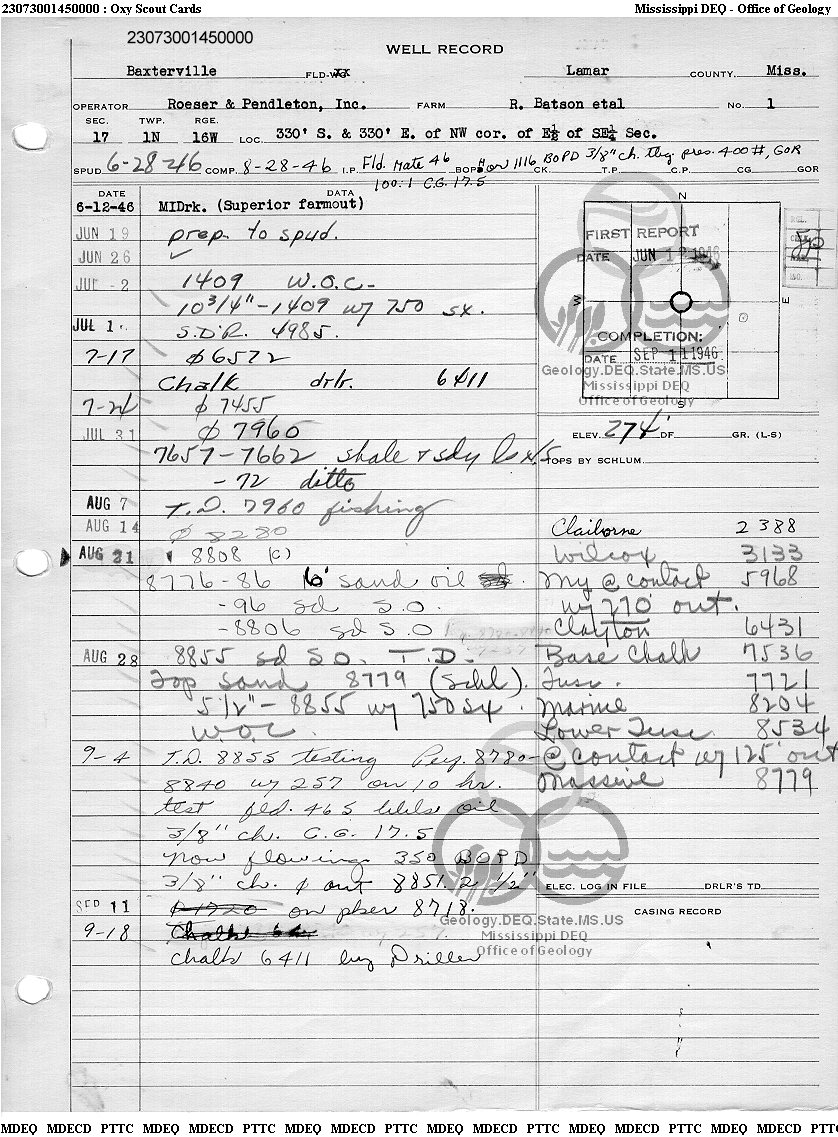 23073001450000 : Oxy Scout Cards Mississippi DEQ - Office of Geology
23073001450000
WELL RECORD
Baxterville FLD-WX Lamar COUNTY Miss.
OPERATOR Roeser & Pendleton, Inc. FARM R. Batson etal NO. 1
SEC. TWP. RGE.
17 1N 16W LOC. 330' S. & 330' E. of NW cor. of E½ of SE¼ Sec.
SPUD 6-28-46 COMP. 8-28-46 I.P. Fld. Mate 46 BOPD 1116 BOPD 3/8" ch. tbg. pres. 400#, GOR
CK. T.P. C.P. CG GOR
100:1 C.G. 17.5
DATE DATA
6-12-46 MIDrk. (Superior farmout)
JUN 19 prep. to spud.
JUN 26 ✓
JUL -2 1409 W.O.C.
10 3/4" - 1409 w/ 750 sx.
JUL 1 S.D.R. 4985.
7-17 ϕ 6572
Chalk drlr. 6411
7-24 ϕ 7455
JUL 31 ϕ 7960
7657-7662 shale & sdy
-72 ditto
AUG 7 T.D. 7960 fishing
AUG 14 ϕ 8280
AUG 21 8808 (C)
8776-86 6' sand oil
-96 sd S.O.
-8806 sd S.O
AUG 28 8855 sd S.O. T.D.
Top sand 8779 (Schl).
5 1/2" - 8855 w/ 750 sx.
W.O.C.
9-4 T.D. 8855 testing Perf. 8780-
8840 w/ 257 on 10 hr.
test fld. 465 bbls oil
3/8" ch. C.G. 17.5
Now flowing 350 BOPD
3/8" ch. ϕ out 8851. 2 1/2"
SEP 11 on pker 8718.
9-18 Chalk 64
chalk 6411 by Driller
N
W
E
S
FIRST REPORT
DATE JUN 12 1946
COMPLETION:
DATE SEP 11 1946
Geology.DEQ.State.MS.US
Mississippi DEQ
Office of Geology
ELEV. 274' DF GR. (L-S)
TOPS BY SCHLUM.
Claiborne 2388
Wilcox 3133
My @ contact 5968
w/ 270' out.
Clayton 6431
Base Chalk 7536
Tusc. 7721
Marine 8204
Lower Tusc. 8534
@ contact w/ 125' out
Massive 8779
ELEC. LOG IN FILE DRLR'S TD
CASING RECORD
Geology.DEQ.State.MS.US
Mississippi DEQ
Office of Geology
MDEQ MDECD PTTC MDEQ MDECD PTTC MDEQ MDECD PTTC MDEQ MDECD PTTC MDEQ MDECD PTTC MDEQ MDECD PTTC